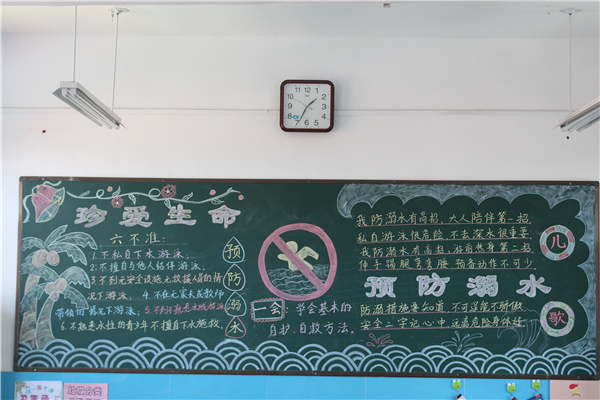 珍爱生命
六不准:
1.不私自下水游泳,
2.不擅自与他人结伴游泳,
3.不到无安全设施无救援人员的情
况下游泳, 4.不在无家长或教师
带领的情况下游泳, 5.不到不熟悉水域游泳
6.不熟悉水性的青少年不擅自下水施救,
预
防
溺
水
一会
学会基本的
自护、自救方法。
我防溺水有高招,大人陪伴第一招,
私自游泳很危险,不去深水很重要
我防溺水有高招,游前热身第二招
伸手踢腿弯弯腰 预备动作不可少
预防溺水
防溺措施要知道,不可逞能不骄傲
安全二字记心中,远离危险身体好
儿
歌
12
1
2
3
4
5
6
7
8
9
10
11
垃圾分类